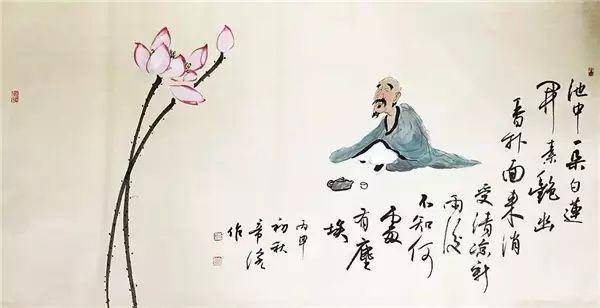 池中一朵白蓮
開素艷幽
香扑面來消
受清涼新
雨後
不知何
處
有塵
埃
丙申
初秋
作